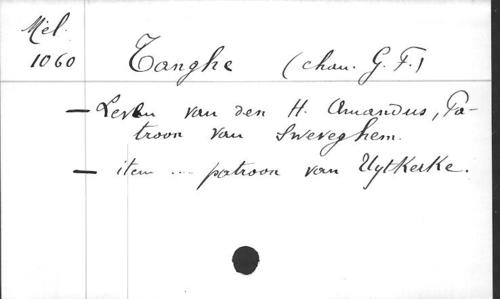 Mél.
1060
Tanghe (chan. G. F.)
— Leven van den H. Amandus, Pa-
troon van Sweveghem.
— item ... patroon van Uytkerke.